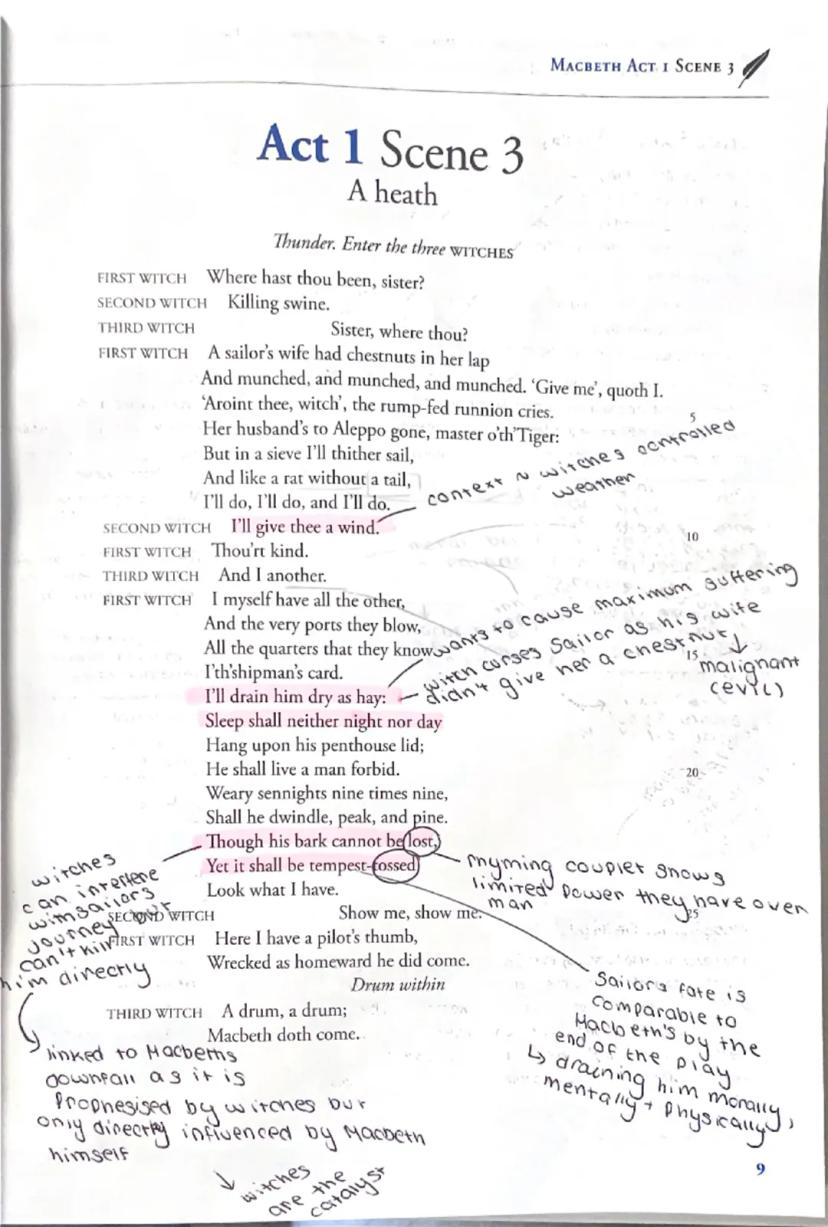 MACBETH ACT 1 SCENE 3
Act 1 Scene 3
A heath
Thunder. Enter the three WITCHES
FIRST WITCH Where hast thou been, sister?
SECOND WITCH Killing swine.
THIRD WITCH Sister, where thou?
FIRST WITCH A sailor's wife had chestnuts in her lap
And munched, and munched, and munched. 'Give me', quoth I.
'Aroint thee, witch', the rump-fed runnion cries. 5
Her husband's to Aleppo gone, master o'th'Tiger:
But in a sieve I'll thither sail,
And like a rat without a tail,
I'll do, I'll do, and I'll do.
context ~ witches controlled
weather
SECOND WITCH I'll give thee a wind. 10
FIRST WITCH Thou'rt kind.
THIRD WITCH And I another.
FIRST WITCH I myself have all the other,
And the very ports they blow,
All the quarters that they know 15
I'th'shipman's card.
I'll drain him dry as hay:
wants to cause maximum suffering
witch curses sailor as his wife
didn't give her a chestnut
malignant
(evil)
Sleep shall neither night nor day
Hang upon his penthouse lid;
He shall live a man forbid. 20
Weary sennights nine times nine,
Shall he dwindle, peak, and pine.
Though his bark cannot be lost,
Yet it shall be tempest-tossed.
Look what I have. 25
rhyming couplet shows
limited power they have over
man
SECOND WITCH Show me, show me.
FIRST WITCH Here I have a pilot's thumb,
Wrecked as homeward he did come.
Drum within
THIRD WITCH A drum, a drum;
Macbeth doth come.
witches
can interfere
with sailors
journey but
can't kill
him directly
linked to Macbeths
downfall as it is
Prophesised by witches but
only directly influenced by Macbeth
himself
witches
are the
catalyst
Sailors fate is
comparable to
Macbeth's by the
end of the play
↳ draining him morally,
mentally + physically
9